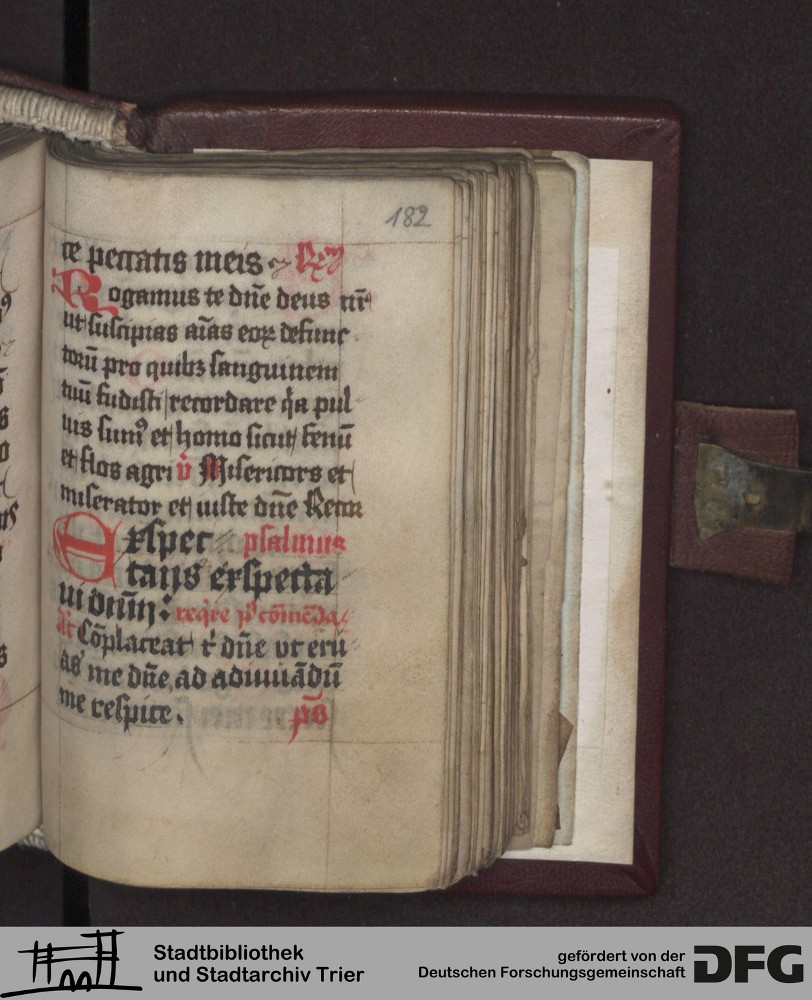 182
te peccatis meis Rꝫ
Rogamus te dn̄e deus nr̄
ut suscipias aīas eoꝝ defunc
torū pro quibꝫ sanguinem
tuū fudisti recordare q̇a pul
uis sumꝰ et homo sicut fenū
et flos agri v̇ Misericors et
miserator et iuste dn̄e Recor
Exspec psalmus
tans exspecta
ui dnm̄:
Cōplaceat t̄ dn̄e ut eru
as me dn̄e ad adiuuādū
me respice. p̄s
Stadtbibliothek
und Stadtarchiv Trier
gefördert von der
Deutschen Forschungsgemeinschaft
DFG